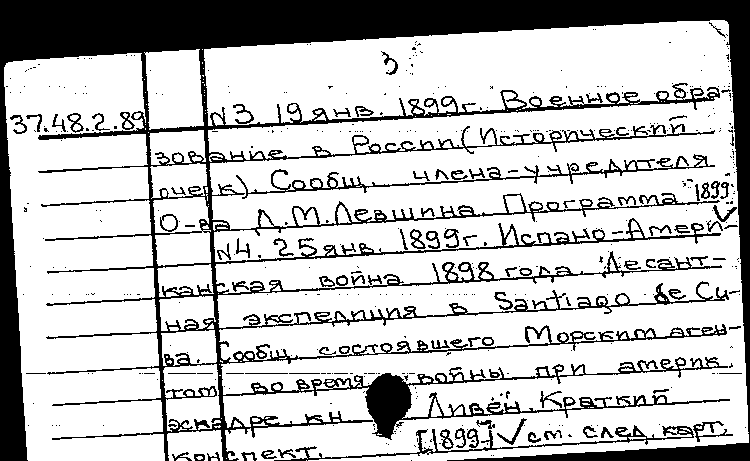 3
37.48.2.89 N3. 19 янв. 1899г. Военное обра-
зование в России (Исторический
очерк). Сообщ. члена-учредителя
О-ва Д.М.Левшина. Программа [1899]
N4. 25 янв. 1899г. Испано-Амери-
канская война 1898 года. Десант-
ная экспедиция в Santiago de Cu-
ba. Сообщ. состоявшего Морским аген-
том во время войны при америк.
эскадре. кн. Ливен. Краткий
конспект. [1899] см. след. карт.